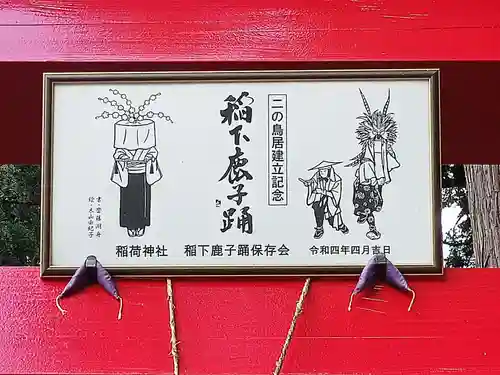 二の鳥居建立記念
稲下鹿子踊
書・齋藤潤舟
絵・木山由紀子
稲荷神社　稲下鹿子踊保存会　令和四年四月吉日